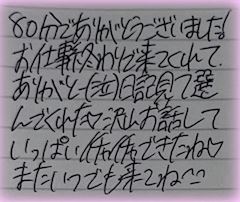 80分でありがとうございました!
お仕事終わりで来てくれて、
ありがとー(泣)日記見て選
んでくれた♡沢山お話して
いっぱいイチャイチャできたね♡
またいつでも来てね^^